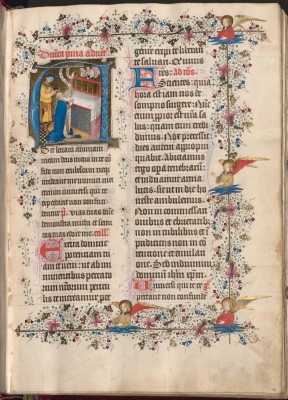 Dnica pma advet
Ad te levavi animam
meam deus meus in te co
fido non erubescam neqz
irrideant me inimici mei
etenim universi qui te ex
pectant non confunden
tur. p̄. Vias tuas dne
demonstra michi et semi
tas tuas edoce me. Coll.
Excita domine
potentiam tu
am et veni: ut ab im
minentibus peccato
rum nr̄orum pericu
lis te mereamur pro
gente eripi te liberan
te saluari. Qui viuis
Fres: Ad ro.
Scientes: quia
hora est iam nos de
sompno surgere. Nūc
enim ppior est nr̄a sa
lus: quam cum credi
dimus. Nox precessit
dies autem appropi
quabit. Abiciamus
ergo opera tenebrarū:
et induamur arma
lucis. sic ut in die ho
neste ambulemus.
Non in comessatati
onibus et ebrietatibꝫ
non in cubilibus et ī
pudiciciis non in cō
tencione et emulati
one. Sed induimini
dominū ihm xpm. g̃
Uniuersi qui te ex
pectant non confunde